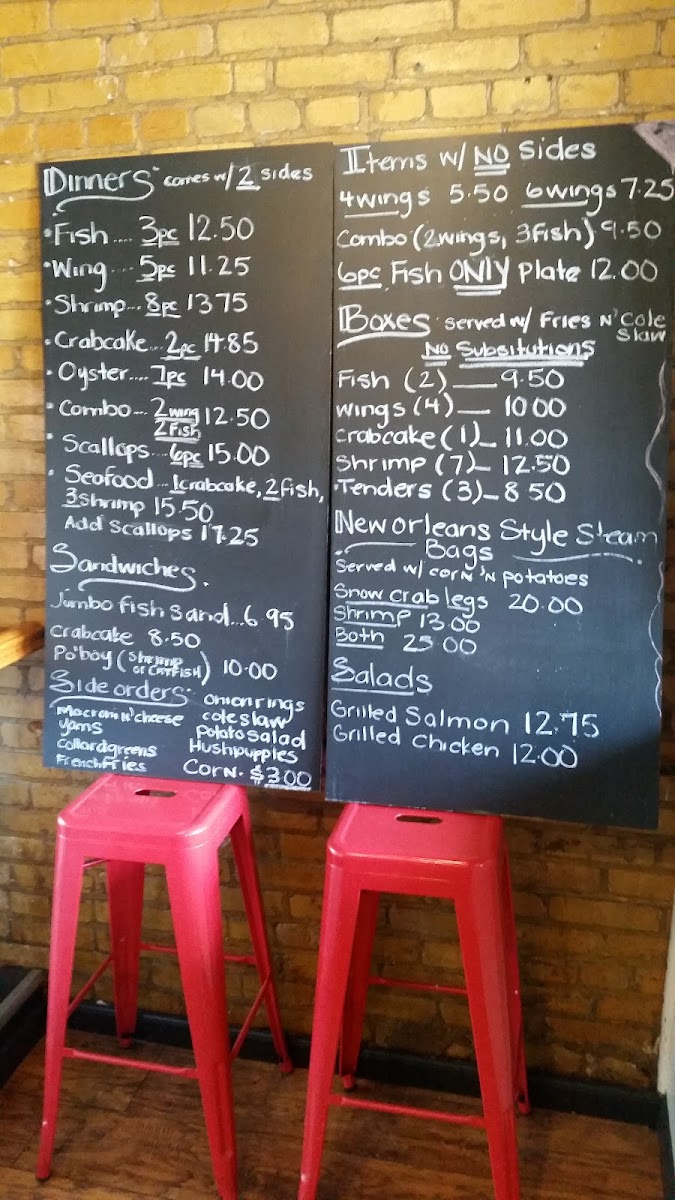 Dinners comes w/ 2 sides
• Fish.... 3pc 12.50
• Wing.... 5pc 11.25
• Shrimp... 8pc 13 75
• Crabcake... 2pc 14.85
• Oyster.... 7pc 14.00
• Combo... 2 wing 12.50
2 Fish
• Scallops... 6pc 15.00
• Seafood... 1crabcake, 2fish,
3shrimp 15.50
Add Scallops 17.25
Sandwiches.
Jumbo fish sand...6 95
Crabcake 8.50
Po'boy (Shrimp or CATFISH) 10.00
Side orders.
Macroni N'cheese
yams
Collardgreens
FrenchFries
onion rings
coleslaw
potato salad
Hushpuppies
Corn. $3.00
Items w/ NO sides
4wings 5.50 6wings 7.25
Combo (2wings, 3fish) 9.50
6pc Fish ONLY plate 12.00
Boxes served w/ Fries N' Cole
Slaw
No Subsitutions
Fish (2) — 9.50
wings (4) — 10 00
crabcake (1) — 11.00
Shrimp (7) — 12.50
Tenders (3) — 8 50
New Orleans Style Steam
Bags
Served w/ corn 'N potatoes
Snow crab legs 20.00
Shrimp 13.00
Both 25 00
Salads
Grilled Salmon 12.75
Grilled Chicken 12.00